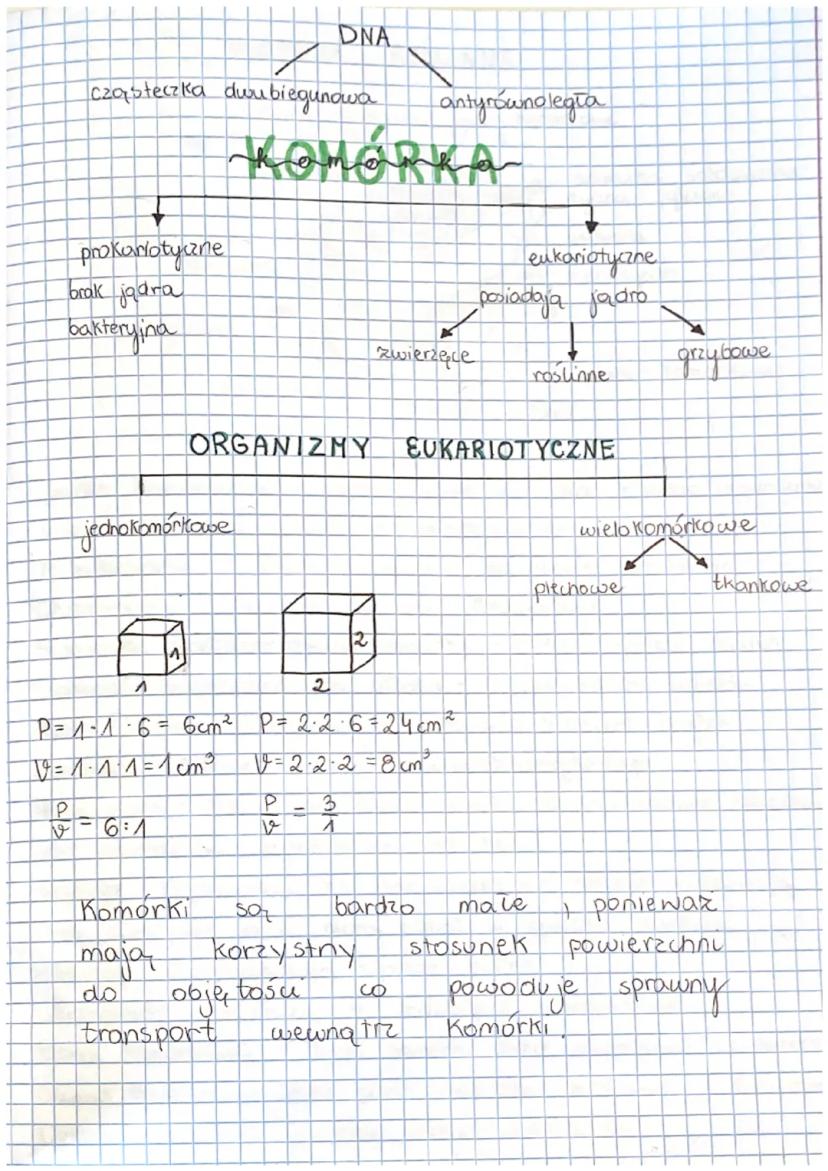 DNA
cząsteczka dwubiegunowa antyrównoległa
KOMÓRKA
komórka
prokariotyczne eukariotyczne
brak jądra posiadają jądro
bakteryjna
zwierzęce roślinne grzybowe
ORGANIZMY EUKARIOTYCZNE
jednokomórkowe wielokomórkowe
plechowe tkankowe
1 2
1 2
P = 1·1·6 = 6cm² P = 2·2·6 = 24cm²
V = 1·1·1 = 1cm³ V = 2·2·2 = 8cm³
P/V = 6:1 P/V = 3/1
Komórki są bardzo małe, ponieważ
mają korzystny stosunek powierzchni
do objętości co powoduje sprawny
transport wewnątrz komórki.